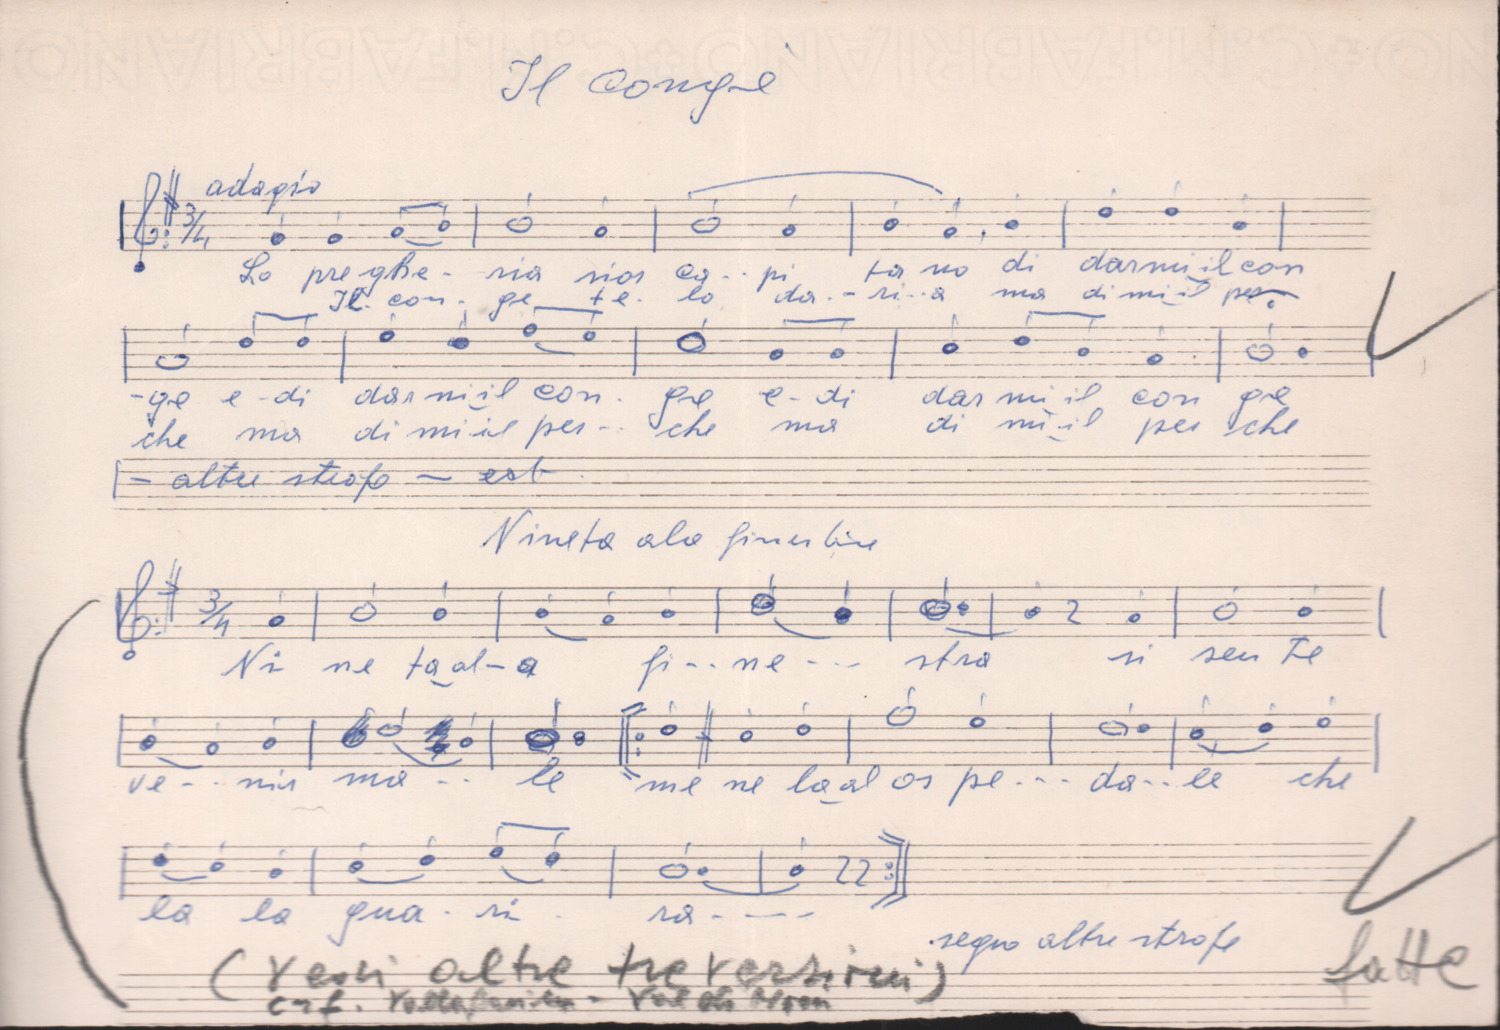 C.M.FABRIANO
Il congè
adagio
3/4
La preghe - ria sior ca - - pi ta no di darmi il con
Il con - ge te - lo da - - ri - - a ma dimi il per -
- ge e - di darmi il con - ge e - di dar mi il con ge
che ma dimi il per - - che ma di mi il per che
- altre strofe -
Nineta ala finestra
3/4
Ni ne ta al - a fi - - ne - - - stra si sen te
ve - - nir ma - - le me ne la al os pe - - - da - - le che
la la gua - ri - ra - - - -
segno altre strofe
(Vedi altre tre versioni)
fatte
cnf. - Val di Non